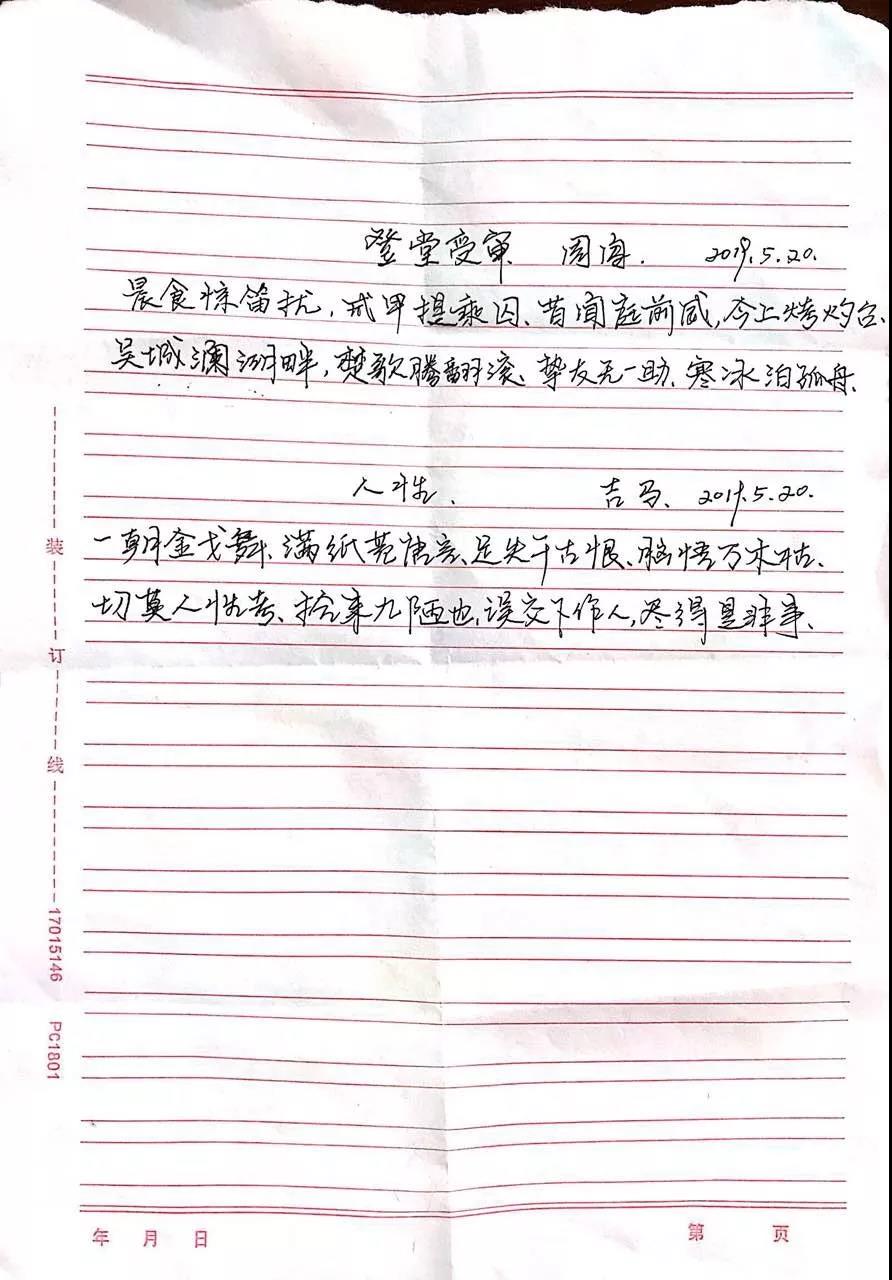 登堂受审 周海. 2019.5.20.
晨食惊笛扰,戒甲提乘囚、昔闻庭前威,今上烤灼台、
吴城澜湖畔,楚歌腾翻滚、挚友无一助、寒冰泊孤舟、
人性、 吉马、2019.5.20.
一朝金戈舞、满纸荒唐言、足失千古恨、脑悟万木枯、
切莫人性考、拾来九陋也、误交下作人,尽得是非事、
装
订
线
17015146 PC1801
年 月 日 第 页